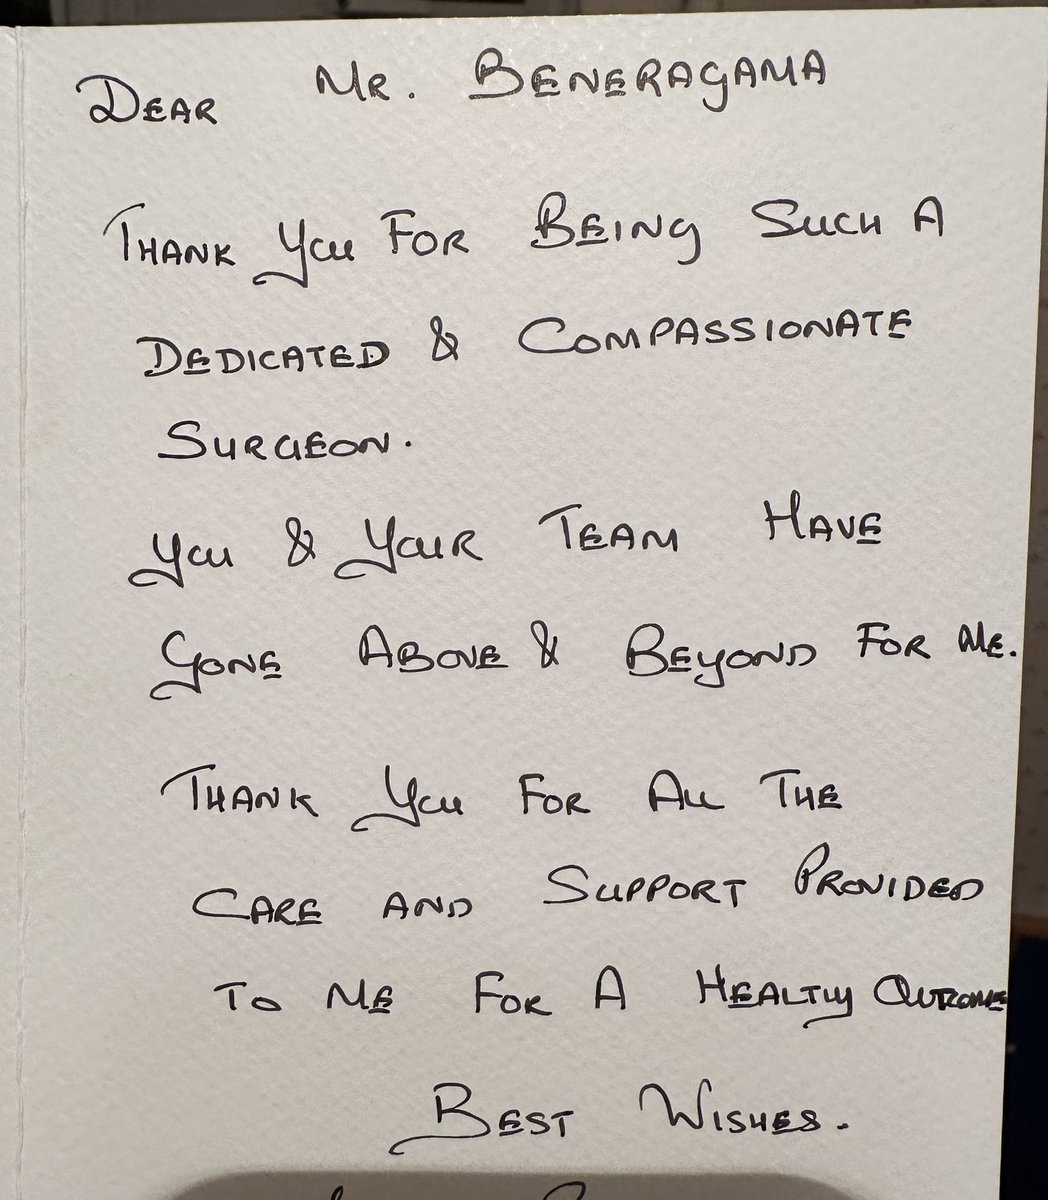 DEAR MR. BENERAGAMA
THANK YOU FOR BEING SUCH A
DEDICATED & COMPASSIONATE
SURGEON.
YOU & YOUR TEAM HAVE
GONE ABOVE & BEYOND FOR ME.
THANK YOU FOR ALL THE
CARE AND SUPPORT PROVIDED
TO ME FOR A HEALTHY OUTCOME
BEST WISHES.